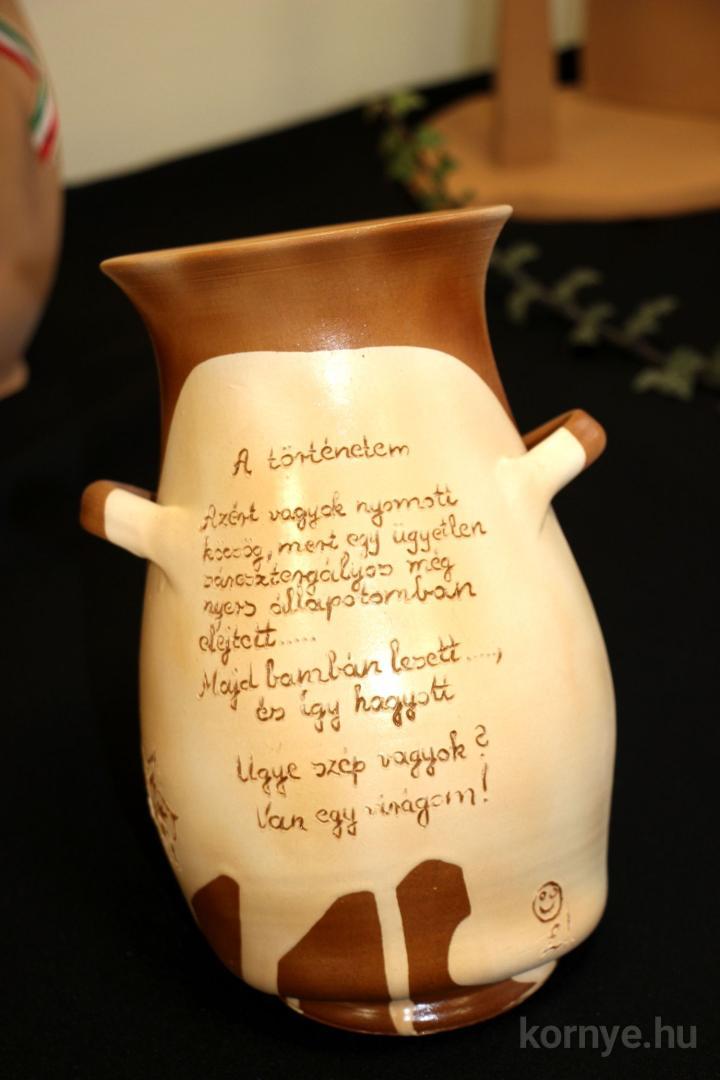 A történetem
Azért vagyok nyomott
köcsög, mert egy ügyetlen
sárosztergályos még
nyers állapotomban
elejtett.....
Majd bambán lesett....,
és így hagyott
Ugye szép vagyok?
Van egy virágom!
kornye.hu